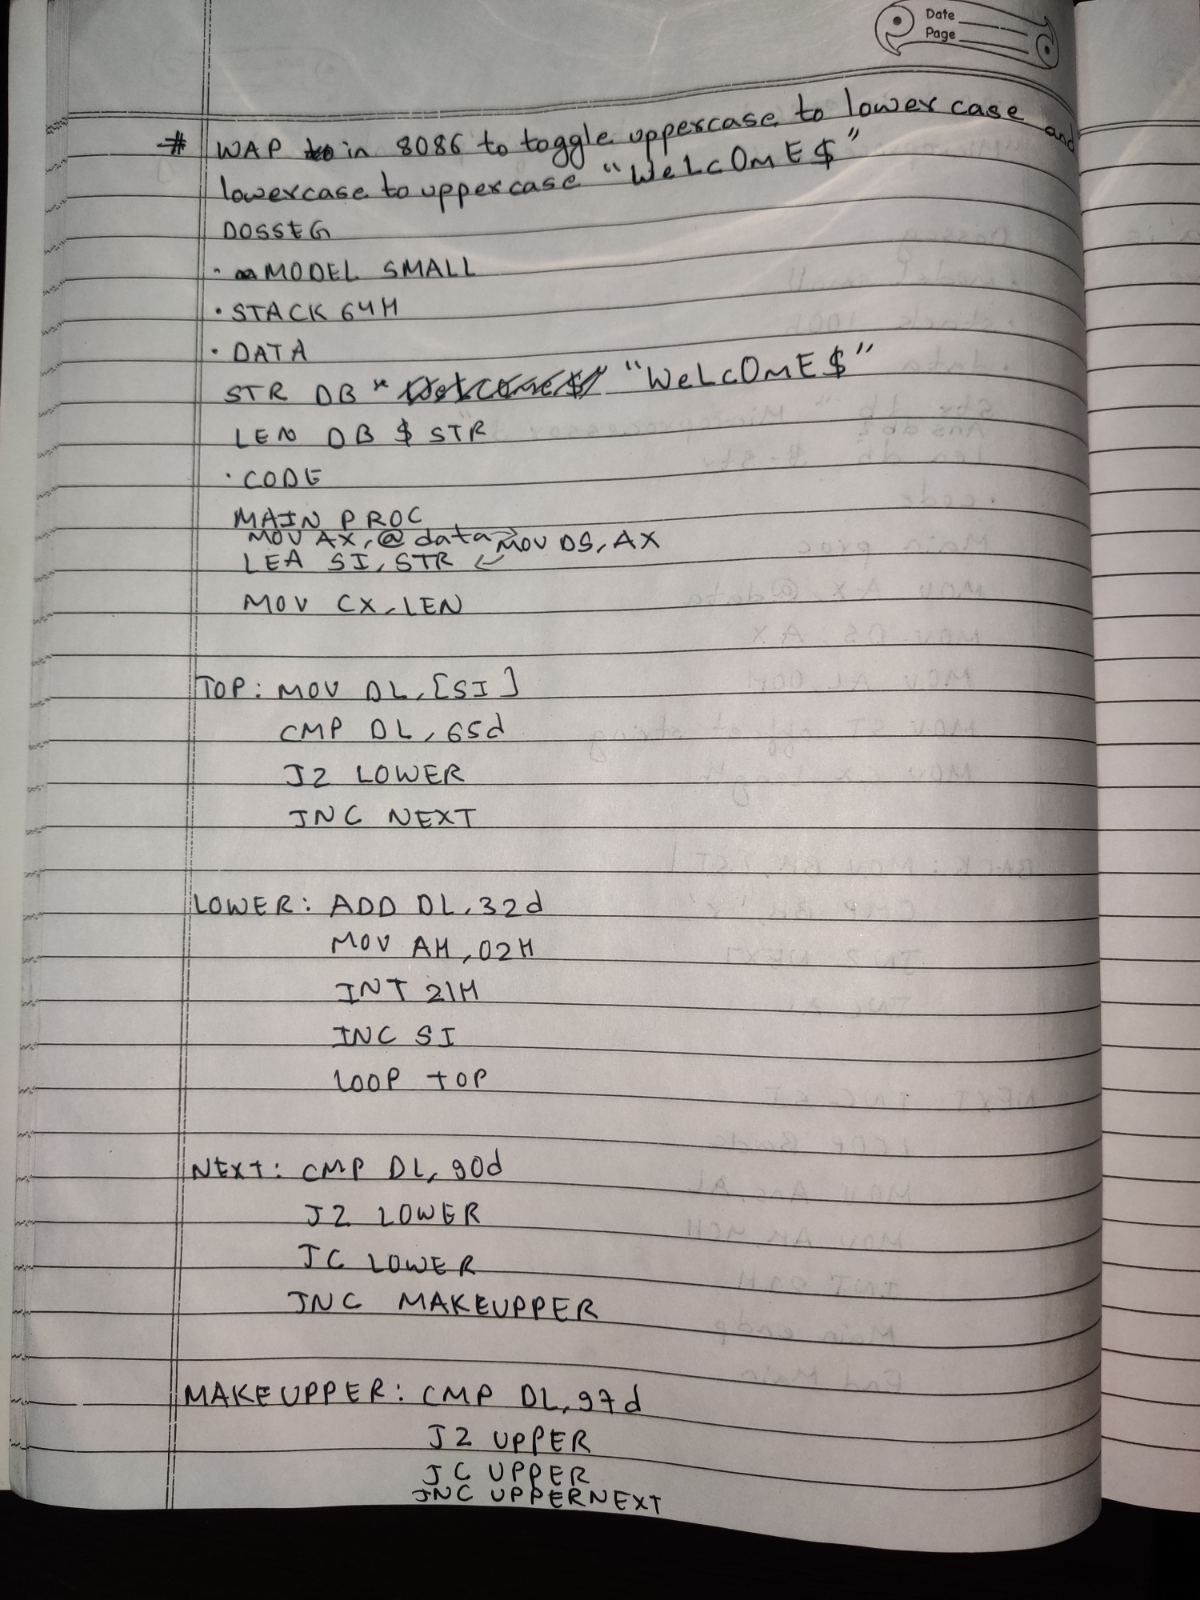 Date
Page
# WAP in 8086 to toggle uppercase to lower case and
lowercase to uppercase "WeLcOmE$"
DOSSEG
. MODEL SMALL
. STACK 64H
. DATA
STR DB "WeLcOmE$"
LEN DB $ STR
. CODE
MAIN PROC
MOV AX, @data MOV DS, AX
LEA SI, STR
MOV CX, LEN
TOP: MOV DL, [SI]
CMP DL, 65d
JZ LOWER
JNC NEXT
LOWER: ADD DL, 32d
MOV AH, 02H
INT 21H
INC SI
LOOP TOP
NEXT: CMP DL, 90d
JZ LOWER
JC LOWER
JNC MAKEUPPER
MAKEUPPER: CMP DL, 97d
JZ UPPER
JC UPPER
JNC UPPERNEXT